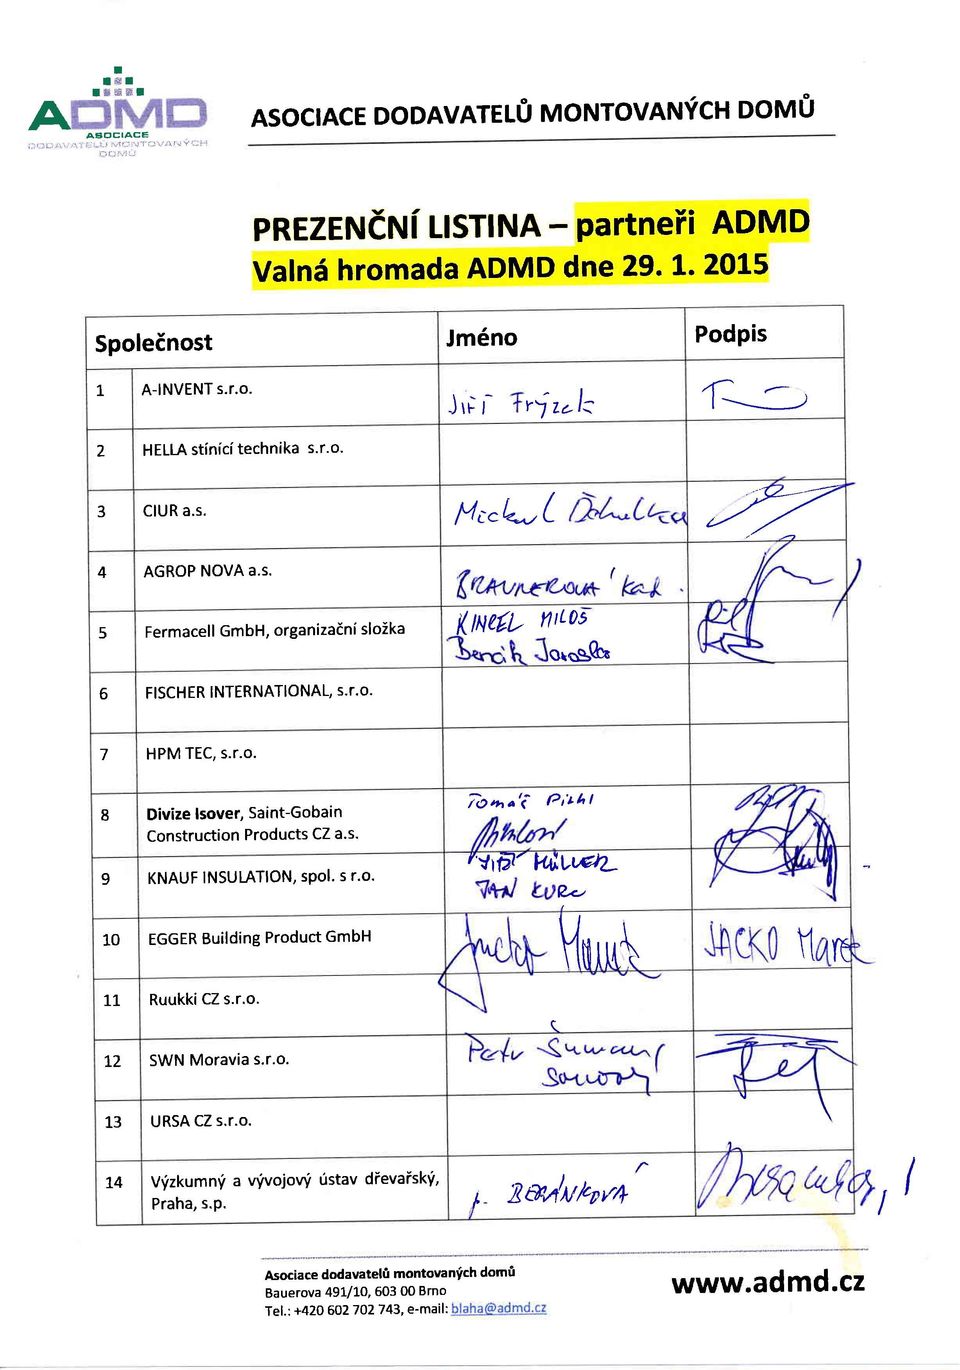 ADMD
ASOCIACE
DODAVATELŮ MONTOVANÝCH
DOMŮ
ASOCIACE DODAVATELŮ MONTOVANÝCH DOMŮ
PREZENČNÍ LISTINA – partneři ADMD
Valná hromada ADMD dne 29. 1. 2015
Společnost Jméno Podpis
1 A-INVENT s.r.o. Jiří Frýzek
2 HELLA stínící technika s.r.o.
3 CIUR a.s.
4 AGROP NOVA a.s. BRAUNEROVÁ
5 Fermacell GmbH, organizační složka KINCEL MILOŠ
Benčík Jaroslav
6 FISCHER INTERNATIONAL, s.r.o.
7 HPM TEC, s.r.o.
8 Divize Isover, Saint-Gobain
Construction Products CZ a.s.
Tomáš
9 KNAUF INSULATION, spol. s r.o. JIŘÍ MÜLLER
JAN KURC
10 EGGER Building Product GmbH JACKO Marek
11 Ruukki CZ s.r.o.
12 SWN Moravia s.r.o. Petr
13 URSA CZ s.r.o.
14 Výzkumný a vývojový ústav dřevařský,
Praha, s.p.
p. BERÁNKOVÁ
Asociace dodavatelů montovaných domů
Bauerova 491/10, 603 00 Brno
Tel.: +420 602 702 743, e-mail: blaha@admd.cz
www.admd.cz